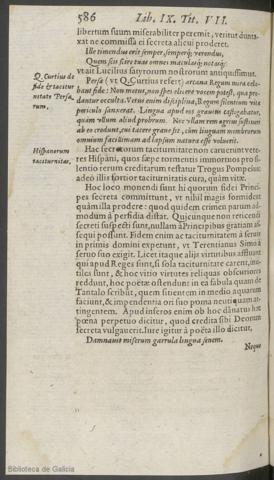 586 Lib. IX. Tit. VII.
libertum suum miserabiliter peremit, veritus dunta-
xat ne commissa ei secreta alicui proderet.
Ille timendus erit semper, semperq; verendus,
Quem scis scire tuas omnes maculasq; notasq;
vt ait Lucilius satyrorum nostrorum antiquissimus.
Q. Curtius de fide & tacitur nitate Persa, rum.
Persæ (vt Q. Curtius refert) arcana Regum mira cela-
bant fide: Non metus, non spes elicere vocem potest, qua pro-
dantur occulta. Vetus enim disciplina, Regum silentium vitæ
periculo sanxerat. Lingua apud eos gravius castigabatur,
quam vllum aliud probrum. Nec vllam rem agrius sustineri
ab eo credunt, cui tacere grave sit, cùm linguam membrorum
omnium facillimam ad lapsum natura esse voluerit.
Hispanorum taciturnitas.
Hac secretorum taciturnitate non caruerunt vete-
res Hispani, quos sæpe tormentis immortuos pro si-
lentio rerum creditarum testatur Trogus Pompeius:
adeò illis fortior taciturnitatis cura, quàm vitæ.
Hoc loco monendi sunt hi quorum fidei Princi-
pes secreta committunt, vt nihil magis formident
quàm illa prodere: quod quidem crimen parùm ad-
modum à perfidia distat. Quicunque non reticendi
secreti suspecti sunt, nullam à Principibus gratiam as-
sequi possunt. Fidem enim ac taciturnitatem à servis
in primis domini expetunt, vt Terentianus Simo à
servo suo exigit. Licet itaque alijs virtutibus affluant
qui apud Reges sunt, si sola taciturnitate careant, inu-
tiles sunt, & hoc vitio virtutes reliquas obscuriores
reddunt, hoc poëtæ ostendunt: in ea fabula quam de
Tantalo scribũt, quem sitientem in medio aquarum
faciunt, & impendentia ori suo poma neutiquam at-
tingentem. Apud inferos enim ob hoc dãnatus hac
pœna perpetuo dicitur, quod credita sibi Deorum
secreta vulgaverit. Iure igitur à poëta illo dicitur,
Damnavit miserum garrula lingua senem.
Neque
Biblioteca de Galicia